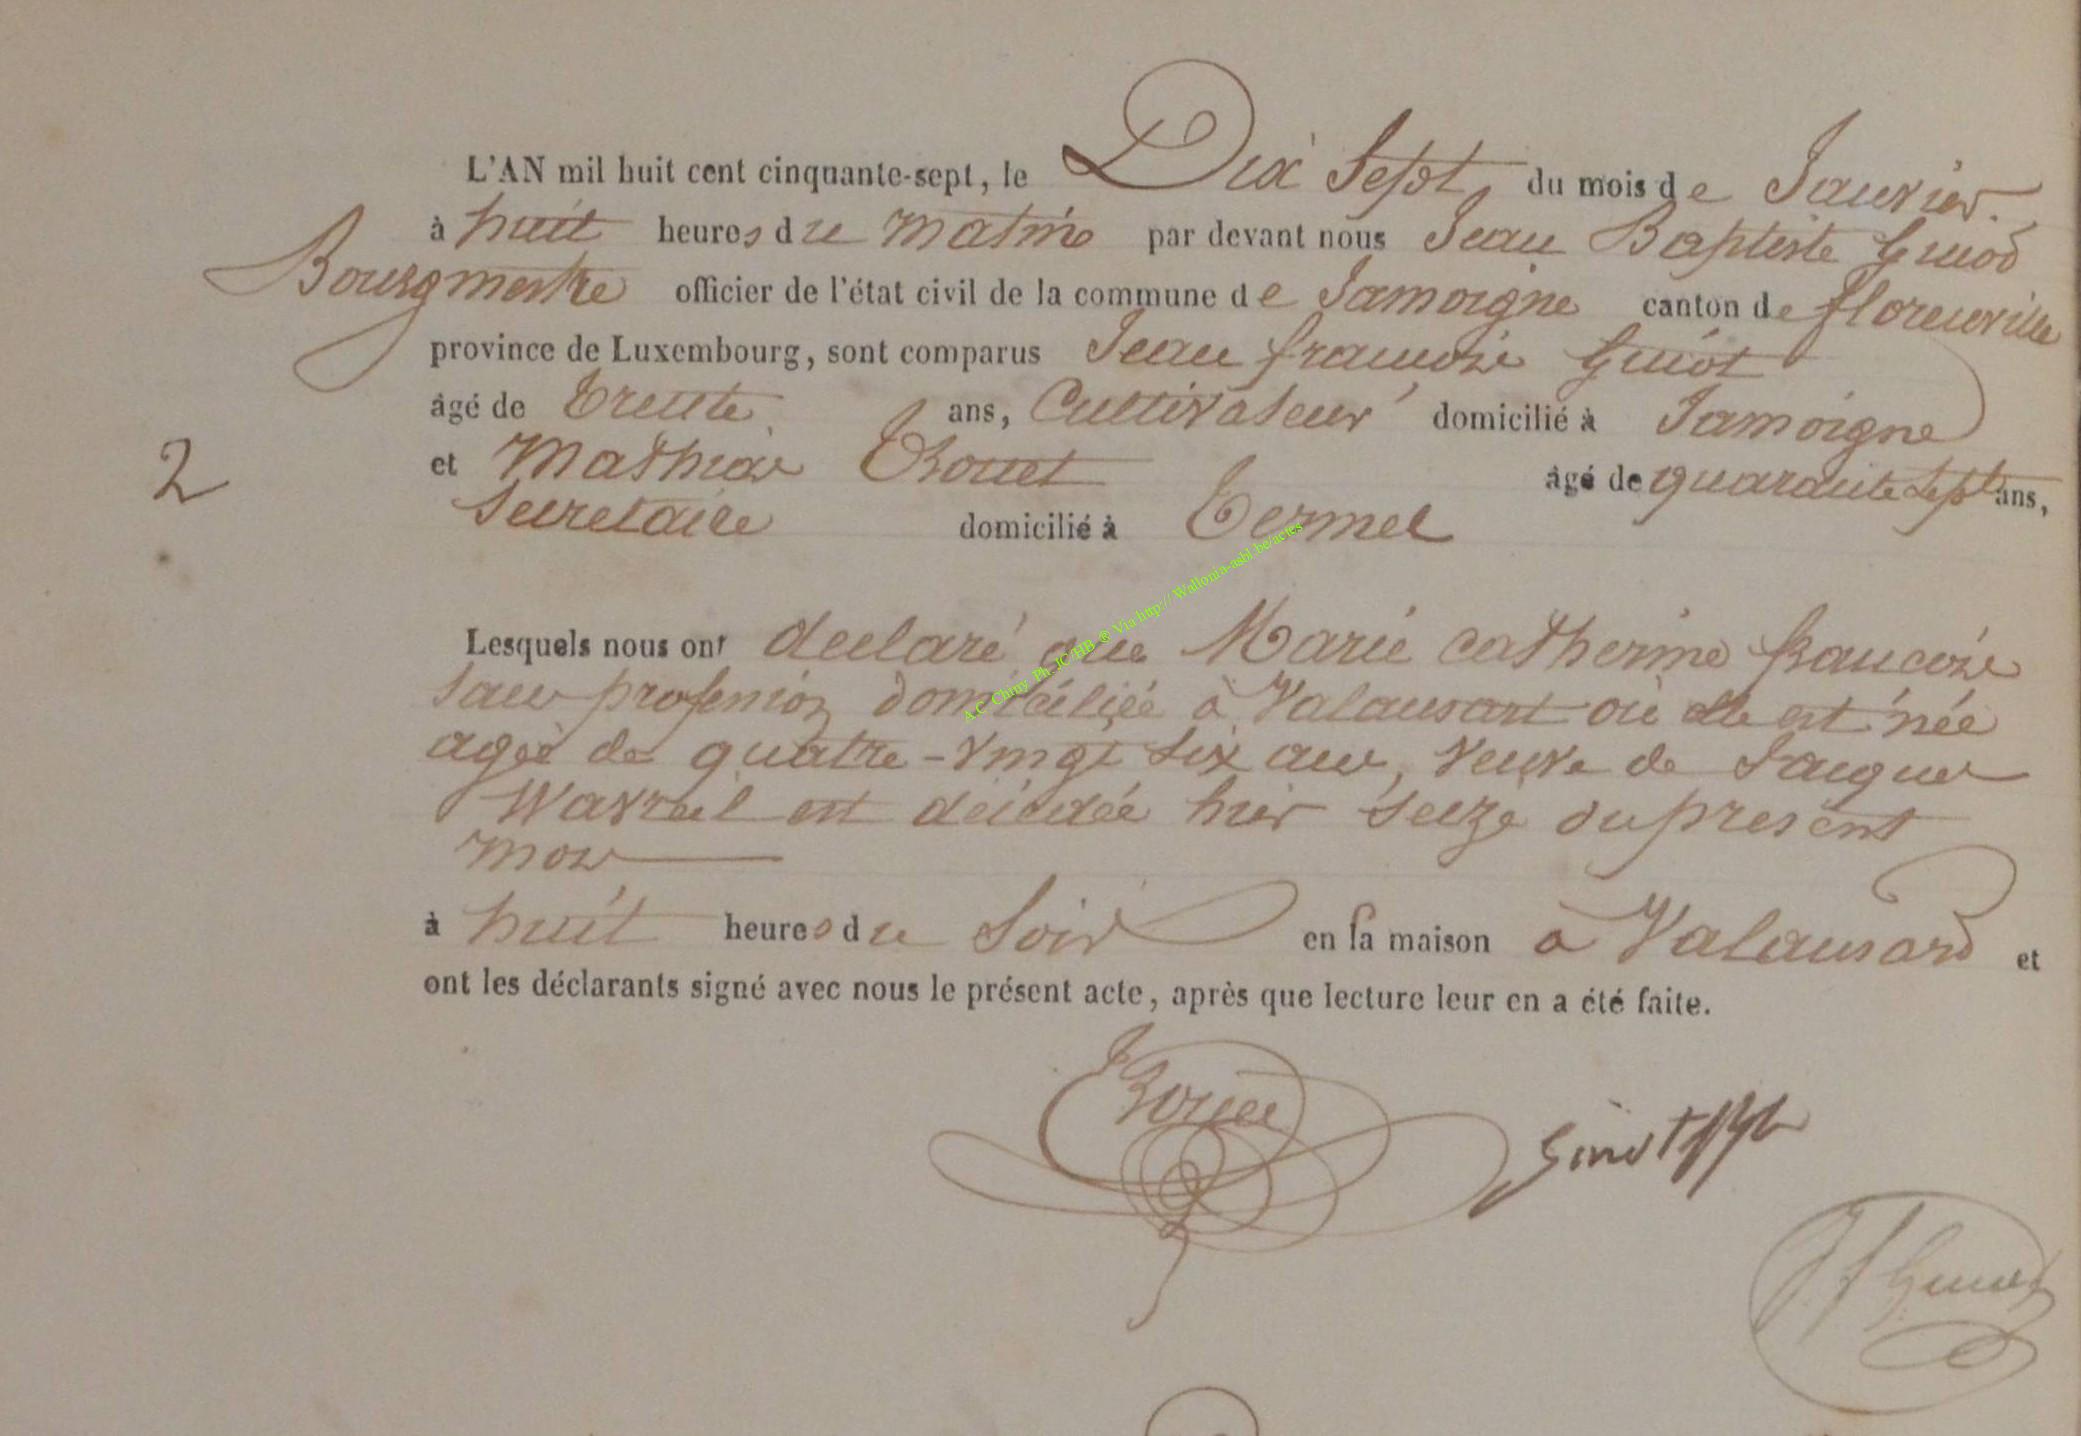 L'AN mil huit cent cinquante-sept, le Dix Sept, du mois de Janvier.
à huit heures du matin par devant nous Jean Baptiste Guiot
Bourgmestre officier de l'état civil de la commune de Jamoigne canton de florenville
province de Luxembourg, sont comparus Jean françois Guiot
âgé de trente ans, Cultivateur domicilié à Jamoigne
et Mathias Thouet âgé de quarante sept ans,
2
Secretaire domicilié à Termel
Lesquels nous ont declaré que Marie catherine françois
sans profession domiciliée à Valansart où elle est née
agée de quatre-vingt six ans, veuve de Jacques
Wavreil est décédée hier seize du présent
mois
à huit heures du Soir en sa maison à Valansard et
ont les déclarants signé avec nous le présent acte, après que lecture leur en a été faite.
Guiot
J f Guiot
A.C Chiny Ph. JC/HB ® Via http://Wallonia-asbl.be/actes